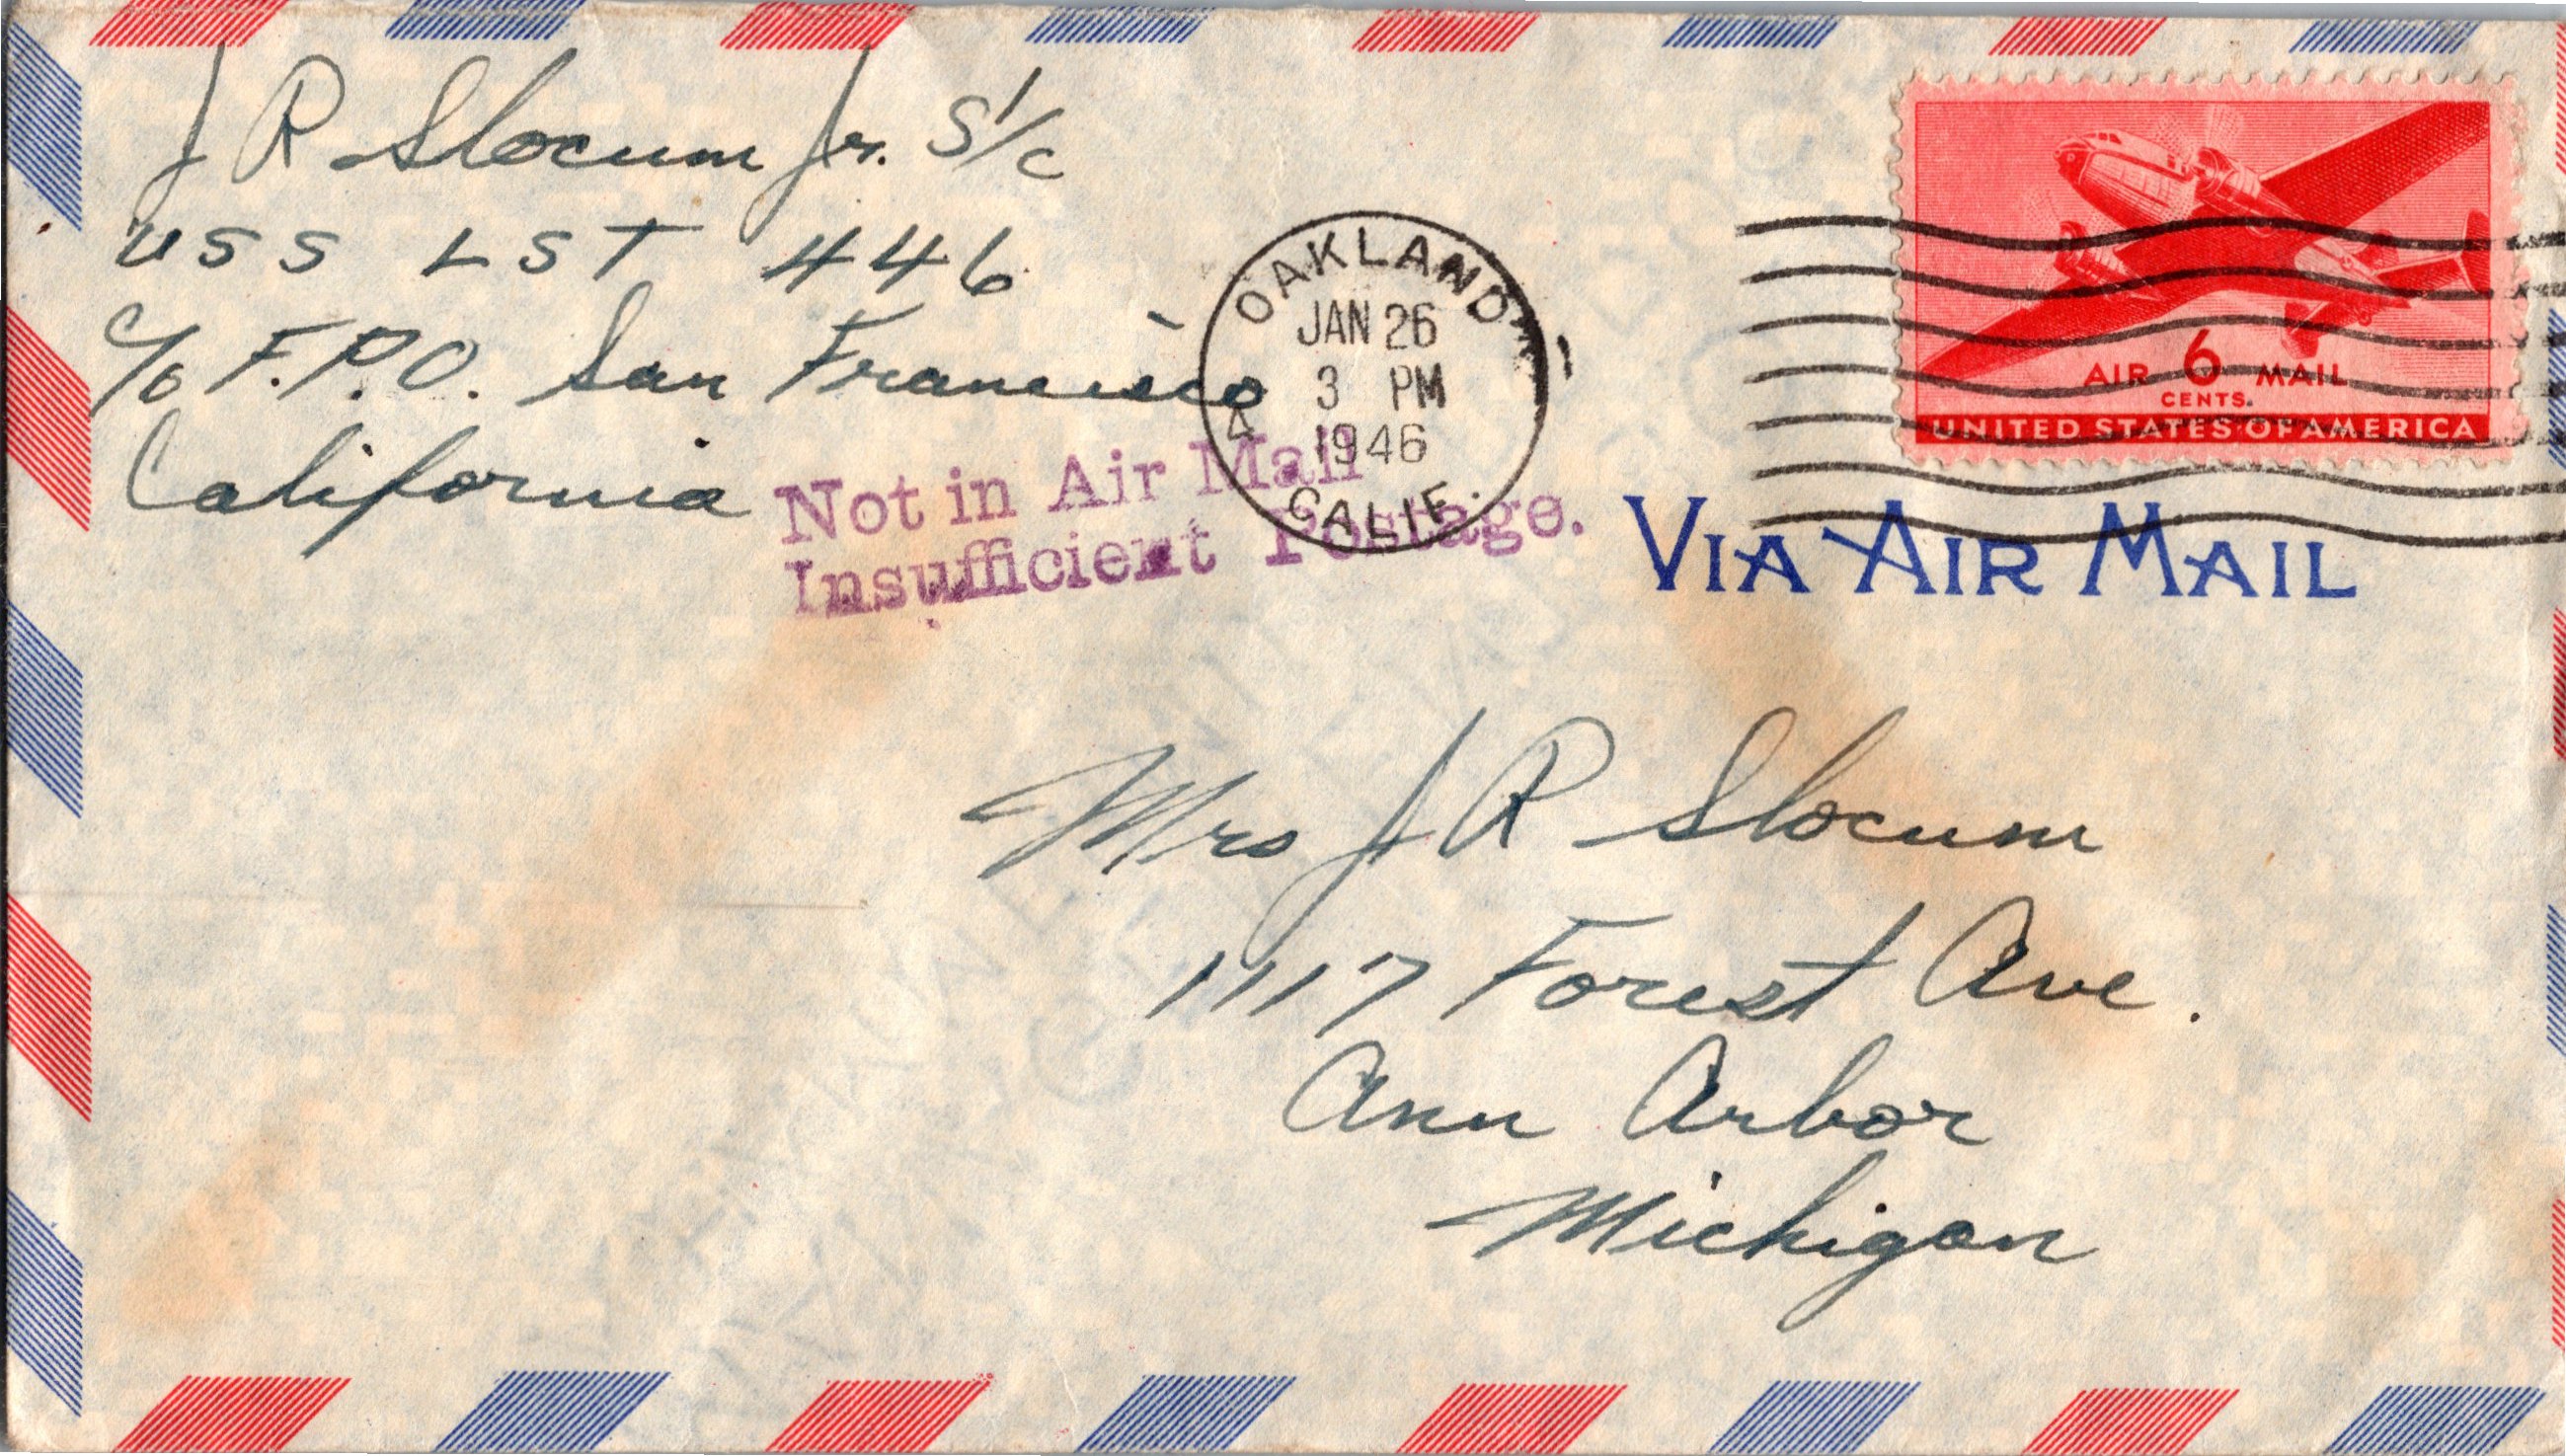 J R Slocum Jr. S1/c
USS LST 446
c/o F.P.O. San Francisco
California
OAKLAND
JAN 26
3 PM
1946
CALIF.
4
Not in Air Mail
Insufficient Postage.
AIR 6 MAIL
CENTS.
UNITED STATES OF AMERICA
VIA AIR MAIL
Mrs J R Slocum
1117 Forest Ave.
Ann Arbor
Michigan